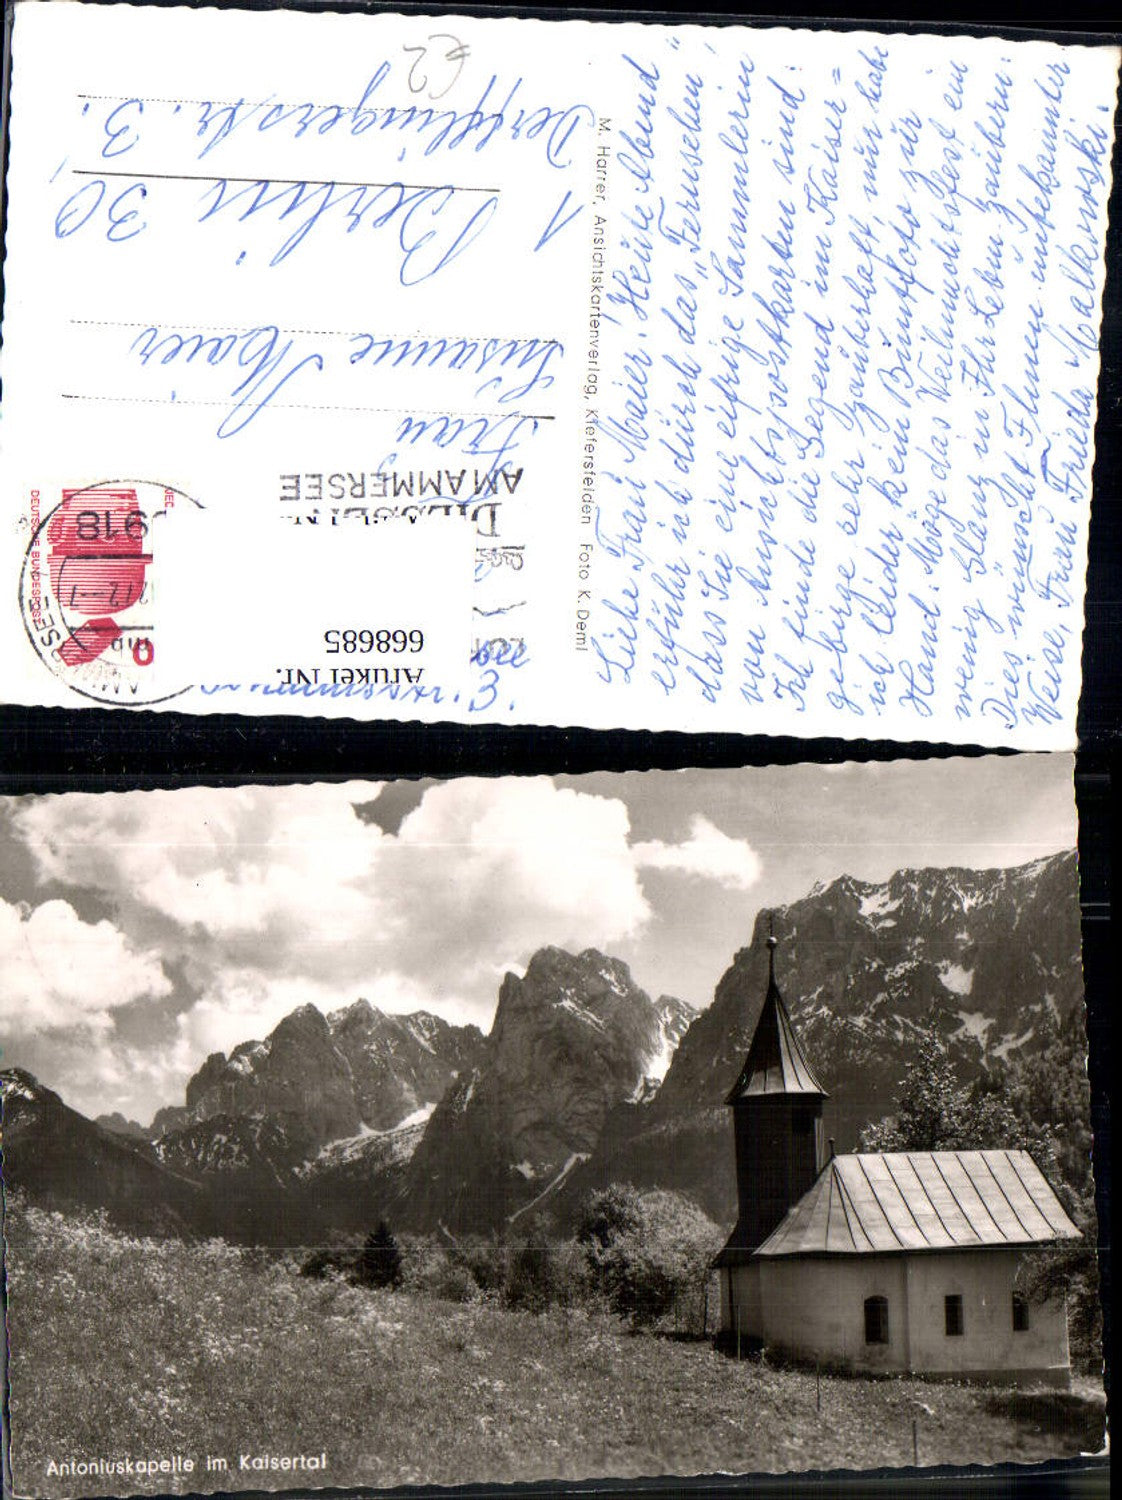 Liebe Frau Maier! Heute Abend
erfuhr ich durch das „Fernsehen",
dass Sie eine eifrige Sammlerin
von Ansichtspostkarten sind.
Ich finde die Gegend im Kaiser=
gebirge sehr zauberhaft, nur habe
ich leider kein Buntfoto zur
Hand. Möge das Weihnachtsfest ein
wenig Glanz in Ihr Leben zaubern.
Dies wünscht Ihnen unbekannter
Weise, Frau Frieda Malkowski.
M. Harrer, Ansichtskartenverlag, Kiefersfelden Foto K. Deml
Frau
Susanne Maier
1 Berlin 30
Derfflingerstr. 3.
€2
AMAMMERSEE
DEUTSCHE BUNDESPOST
8918
Artikel Nr.
668685
Antoniuskapelle im Kaisertal